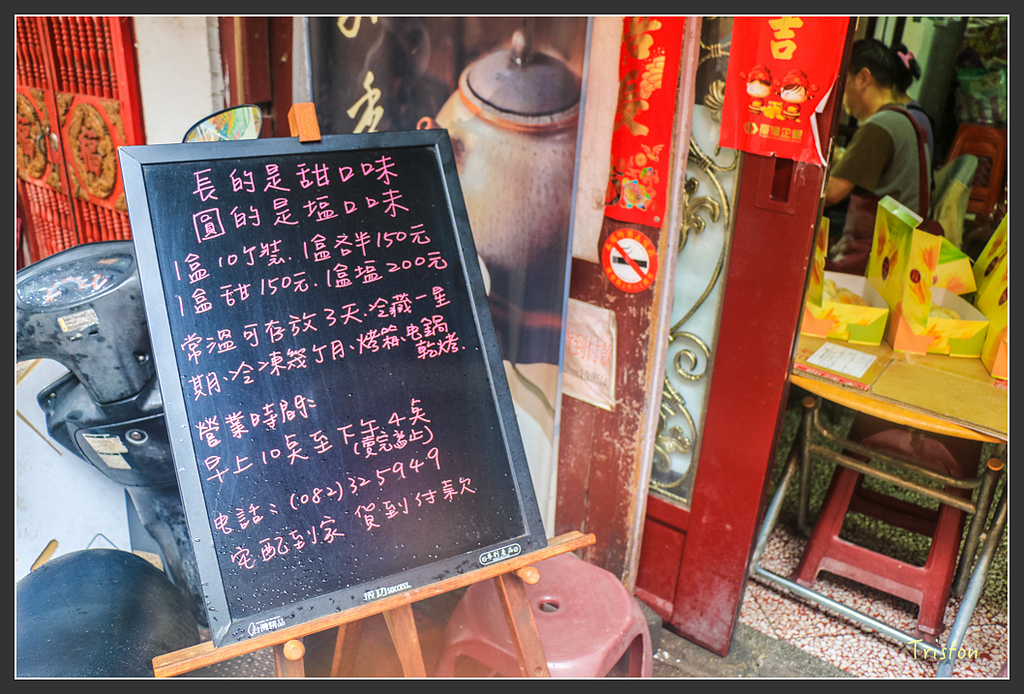 長的是甜口味
圓的是塩口味
1盒10个裝.1盒各半150元
1盒甜150元.1盒塩200元
常溫可存放3天.冷藏一星
期.冷凍幾个月.烤箱.电鍋
乾烤.
營業時間:
早上10点至下午4点
(賣完為止)
电話:(082)325949
宅配到家 貨到付款
成功 SUCCESS
台灣精品
吉
Triston